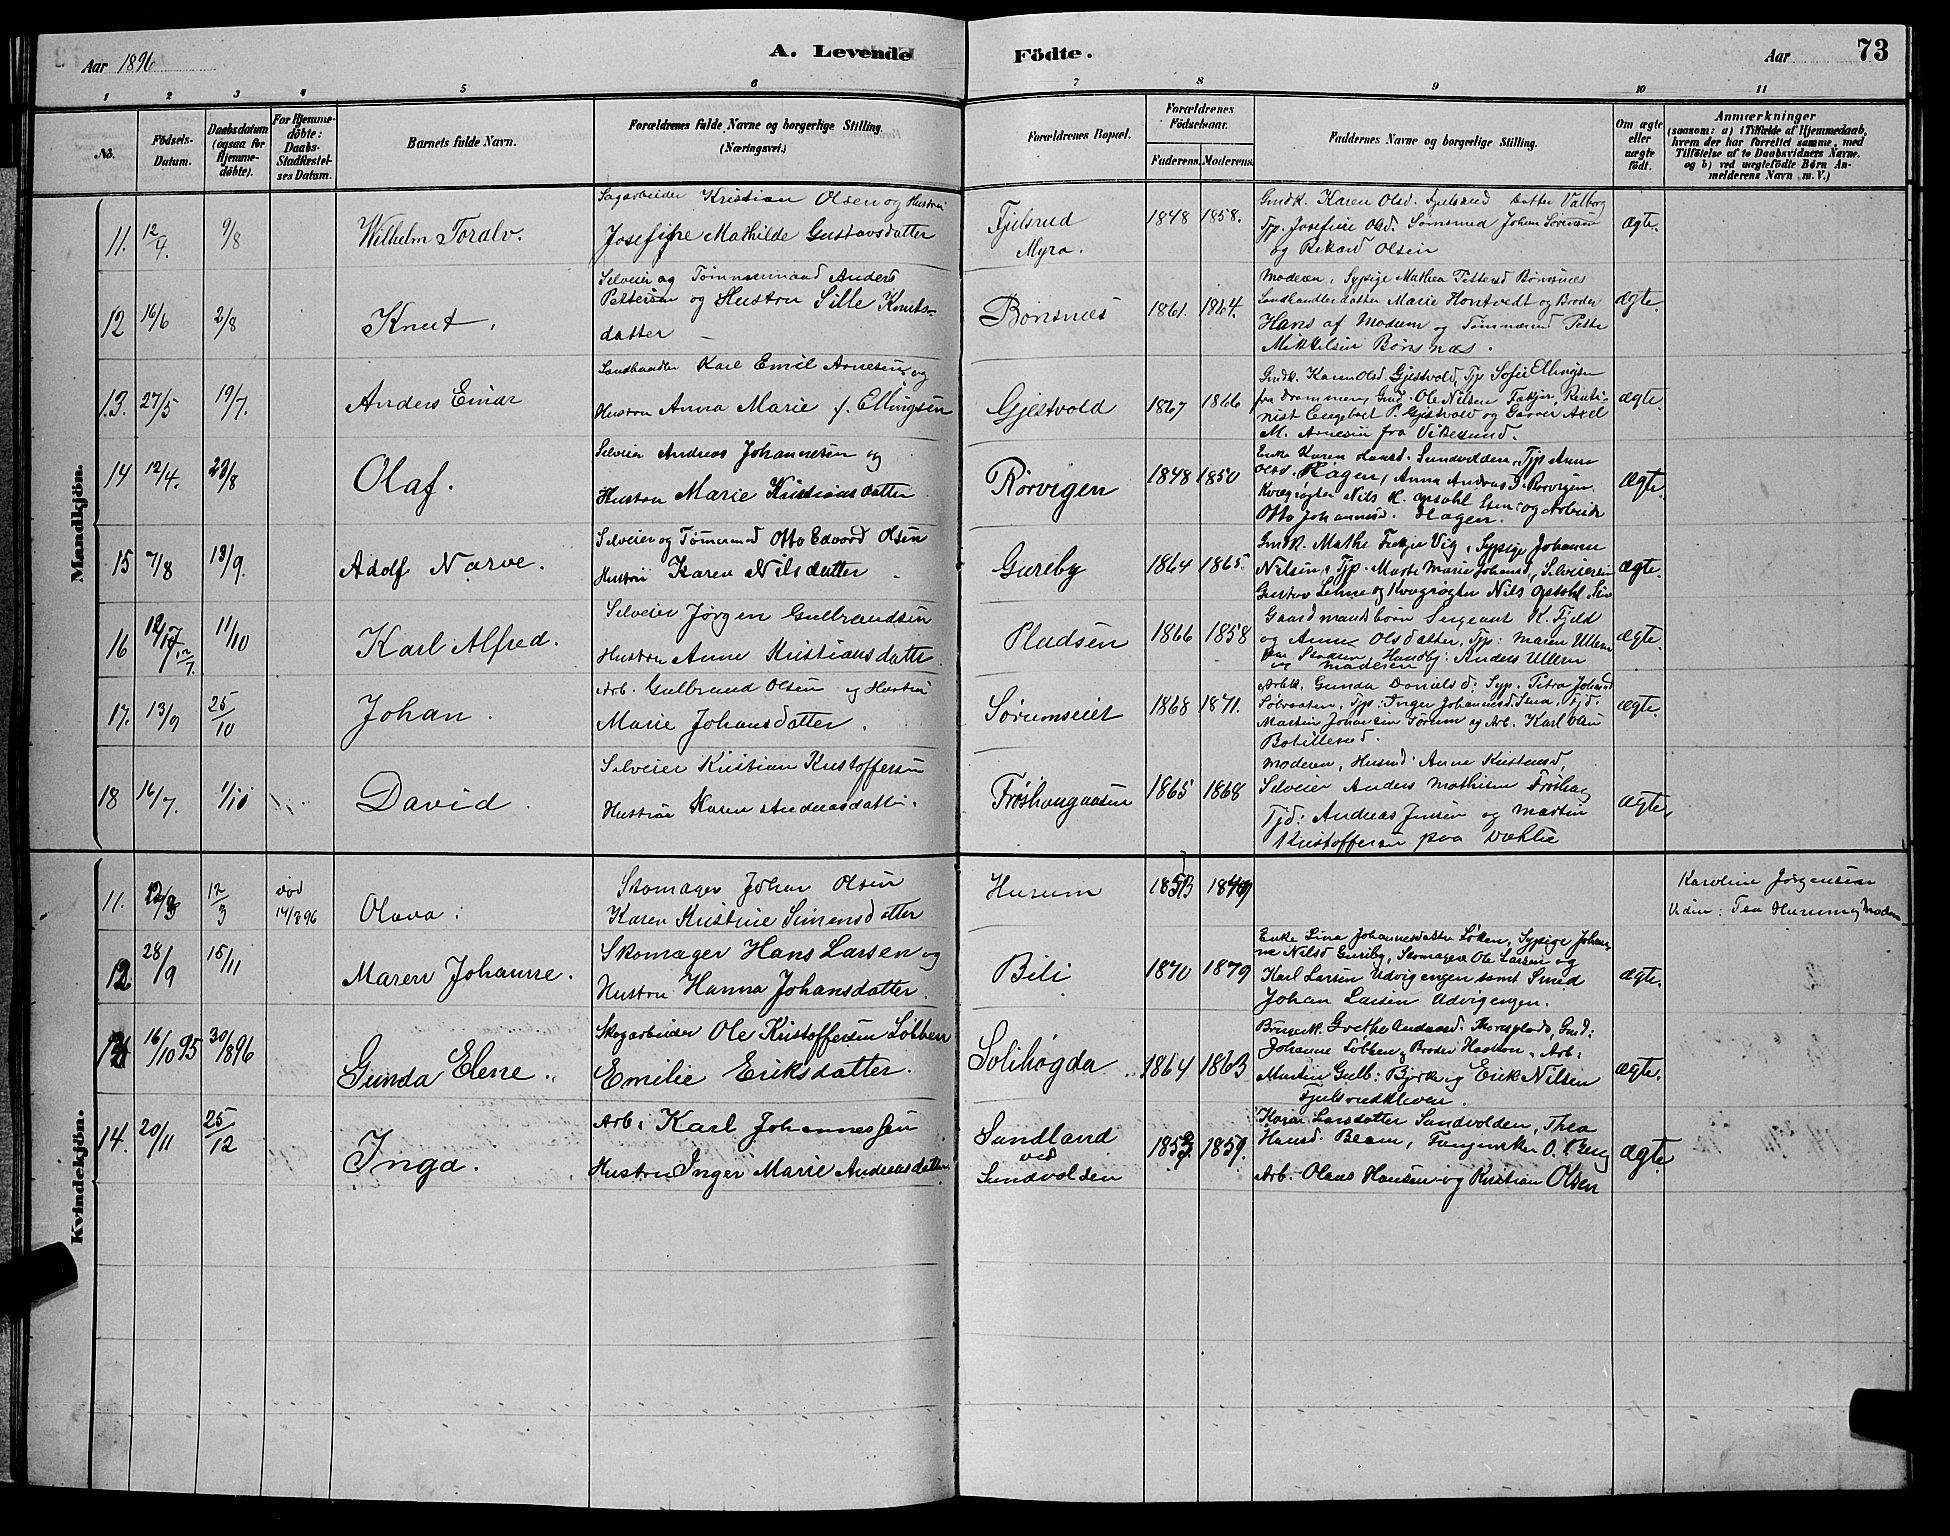 Aar 1896
A. Levende
Födte.
Aar
73
1 2 3 4 5 6 7 8 9 10 11
No.
Födsels-Datum.
Daabsdatum (ogsaa for Hjemme-döbte).
For Hjemme-döbte: Daabs-Stadfæstel-ses Datum.
Barnets fulde Navn.
Forældrenes fulde Navne og borgerlige Stilling. (Næringsvei.)
Forældrenes Bopæl.
Forældrenes Födselsaar.
Faderens. Moderens.
Faddernes Navne og borgerlige Stilling.
Om ægte eller uægte födt.
Anmærkninger
(saasom: a) i Tilfælde af Hjemmedaab,
hvem der har forrettet samme, med
Tilföielse af to Daabsvidners Navne.
og b) ved uægtefödte Börn An-
melderens Navn m. V.)
Mandkjön.
11. 12/4. 9/8 Wilhelm Toralv.
Sagarbeider Kristian Olsen og Hustru
Josefine Mathilde Gustavsdatter
Fjelsrud
Myra.
1848 1858.
Gmdk. Karen Olsd. Fjelsrud Datter Valborg
Tjp. Josefine Olsd. Sørnsrud Johan Sørensen
og Rikard Olsen
ægte.
12 16/6 2/8 Knut.
Selveier og Tømmermand Anders
Pettersen og Hustru Sille Knuts-
datter
Bønsnæs 1861. 1864.
Moderen, Sypige Mathea Pettersd Bønsnæs
Landhandlerdatter Marie Hontvedt og Broder
Hans af Modum og Tømmermd Petter
Mikkelsen Bønsnæs.
ægte.
13. 27/5 19/7. Anders Einar
Landhandler Karl Emil Arnesen og
Hustru Anna Marie f. Ellingsen
Gjestvold 1867 1866
Gmdk. Karen Olsd. Gjestvold, Tjp Sofie Ellingsen
fra Drammen, Gmd. Ole Nilsen Fekjær, Renti-
nist Engebret P. Gjestvold og Garver Axel
M. Arnesen fra Vikesund.
ægte.
14 12/4. 23/8 Olaf.
Selveier Andreas Johannesen og
Hustru Marie Kristiansdatter
Rørvigen 1848 1850
Enke Karen Hansd. Sundvolden, Tjp Anne
Olsd. Hagen, Anna Andreasd. Rørvigen
Kvægrøgter Nils K. Opsahl Sten og Arbeider
Otto Johannesd. Hagen.
ægte.
15 7/8 13/9. Adolf Narve.
Selveier og Tømermd Otto Edvard Olsen
Hustru Karen Nilsdatter
Gureby 1864 1865
Gmdk. Mathe Fekjær Vig, Sypige Johanne
Nilsen, Tjp. Marte Marie Johansd, Selveiersøn
Gustav Lehne og Kvægrøgter Nils Opsahl Sten
ægte.
16 12/7 11/10 Karl Alfred.
Selveier Jørgen Gulbrandsen
Hustru Anne Kristiansdatter
Pladsen 1866 1858
Gaardmandsbørn Sergeant K. Fjeld
og Anne Olsdatter, Tjp: Maren Ullern
Anders Ullern
og Moderen
ægte.
17. 13/9 25/10 Johan.
Arb. Gulbrand Olsen og Hustru
Marie Johansdatter.
Sørumseiet 1868 1871.
Arbk. Gunda Danielsd: Syp. Petra Johansd
Tjp. Inger Johannesd. Tjd.
Martin Johansen Sørum og Arb. Karl
ægte.
18 16/7. 1/11 David.
Selveier Kristian Kristoffersen
Hustru Karen Andreasdatter.
Frøshaugaasen 1865 1868
Moderen, Husmd Anne Kristensd,
Selveier Anders Mathisen Frøshaug
Tjd: Andreas Jensen og Martin
Kristoffersen paa Dæhlie
ægte.
Kvindekjön.
11. 12/3 12/3 død 14/3 96 Olava.
Skomager Johan Olsen
Karen Kristine Simensdatter
Hurum 1853 1849
Karoline Jørgensen
Viden: Tea Hurum og Moderen
12 28/9 15/11 Maren Johanne.
Skomager Hans Larsen og
Hustru Hanna Johansdatter.
Bili 1870 1879
Enke Lina Johannesdatter Løken, Sypige Johan-
ne Nilsd Gureby, Skomagere Ole Larsen og
Karl Larsen Udvigengen samt Smed
Johan Larsen Udvigengen.
ægte.
13 16/10 95 30/1 896 Gunda Elene.
Skogarbeider Ole Kristoffersen Løbben
Emilie Eriksdatter.
Solihøgda 1864 1863
Brugerk. Grethe Andersd. Moresplads, Gmd:
Johanne Løbben og Broder Arb:
Martin Gulb: Bjerke og Erik Nilsen
Fjelsrudkleven.
ægte.
14. 20/11 25/12 Inga.
Arb: Karl Johannessen
Hustru Inger Marie Andreasdatter
Sundland
ved
Sundvolden
1853 1859.
Karen Larsdatter Sundvolden, Thea
Hansd. Beam, O. Berg
Arb. Olaus Hansen og Kristian Olsen
ægte